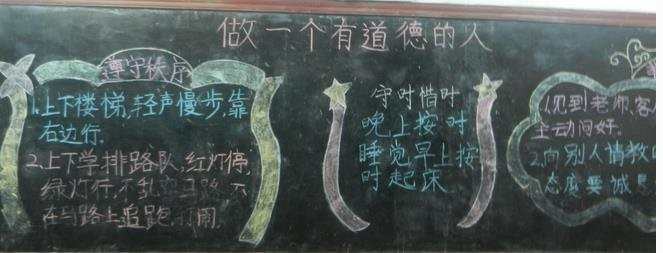 做一个有道德的人
遵守秩序
1.上下楼梯,轻声慢步,靠
右边行.
2.上下学排路队,红灯停,
绿灯行,不乱穿马路,不
在马路上追跑,打闹.
守时惜时
晚上按时
睡觉早上按
时起床
1.见到老师、客
主动问好.
2.向别人请教
态度要诚